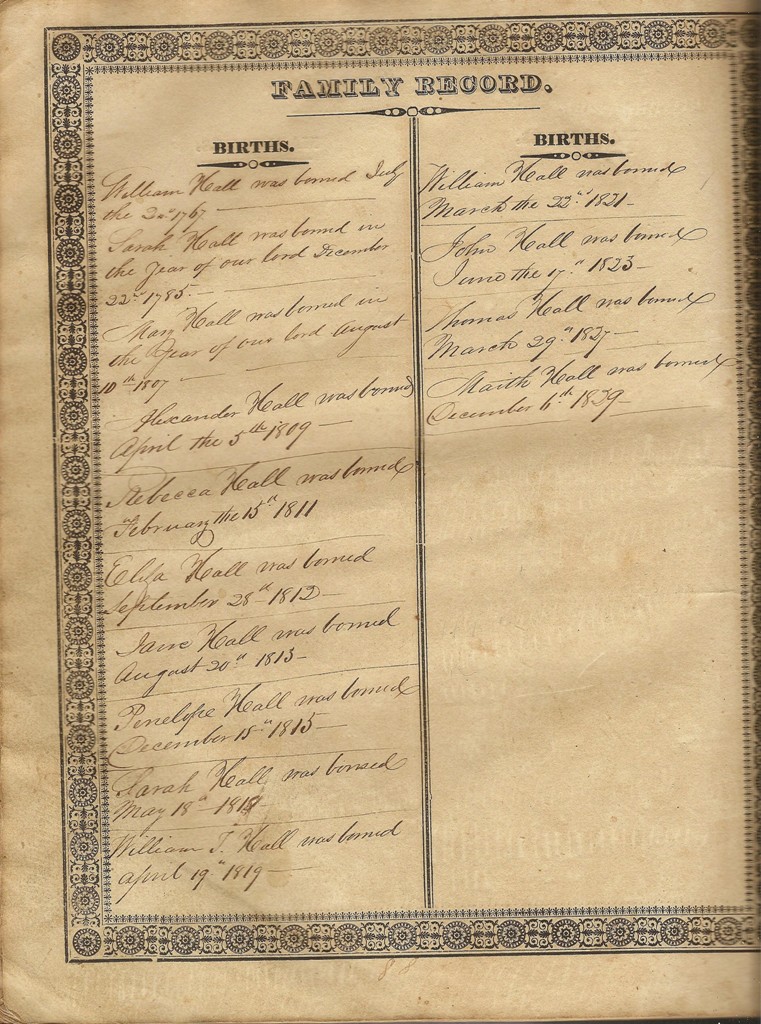 FAMILY RECORD.
BIRTHS.
William Hall was borned July
the 1767
Sarah Hall was borned in
the year of our lord December
22nd 1785
Mary Hall was borned in
the year of our lord august
10th 1807
Alexander Hall was borned
April the 5th 1809
Rebecca Hall was borned
February the 15th 1811
Eliza Hall was borned
September 28th 1812
Jane Hall was borned
August 20th 1813
Penelope Hall was borned
December 15th 1815
Sarah Hall was borned
May 18th
William T. Hall was borned
april 19th 1819
BIRTHS.
William Hall was borned
March the 22nd 1821
John Hall was borned
June the 17th 1823
Thomas Hall was borned
March 29th 1827
Hall was borned
December 6th